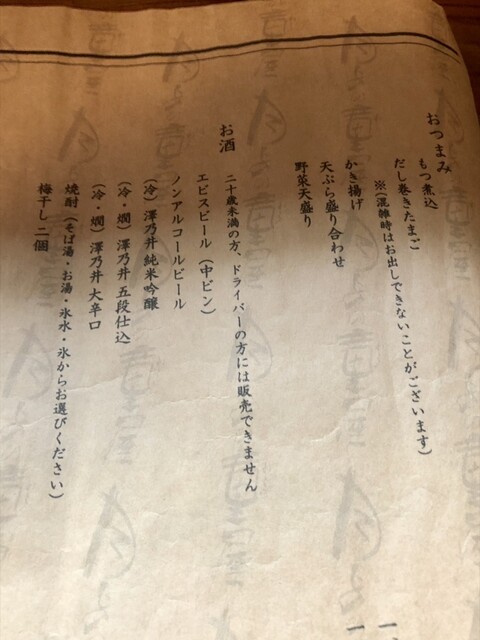 おつまみ
もつ煮込
だし巻きたまご
※(混雑時はお出しできないことがございます)
かき揚げ
天ぷら盛り合わせ
野菜天盛り
お酒
二十歳未満の方、ドライバーの方には販売できません
エビスビール(中ビン)
ノンアルコールビール
(冷)澤乃井 純米吟醸
(冷・燗)澤乃井 五段仕込
(冷・燗)澤乃井 大辛口
焼酎(そば湯・お湯・氷水・氷からお選びください)
梅干し 二個